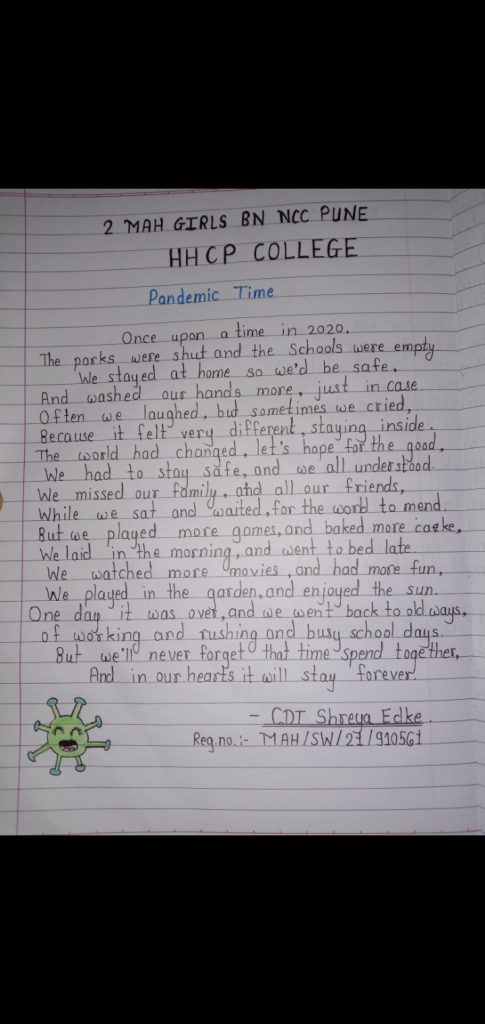 2 MAH GIRLS BN NCC PUNE
HHCP COLLEGE
Pandemic Time
Once upon a time in 2020.
The parks were shut and the Schools were empty
We stayed at home so we'd be safe.
And washed our hands more, just in case.
Often we laughed, but sometimes we cried,
Because it felt very different, staying inside.
The world had changed, let's hope for the good,
We had to stay safe, and we all understood.
We missed our family, and all our friends,
While we sat and waited, for the world to mend.
But we played more games, and baked more cake,
We laid in the morning, and went to bed late.
We watched more movies, and had more fun,
We played in the garden, and enjoyed the sun.
One day it was over, and we went back to old ways,
of working and rushing and busy school days.
But we'll never forget that time spend together,
And in our hearts it will stay forever.
- CDT Shreya Edke.
Reg.no.:- MAH/SW/21/910561